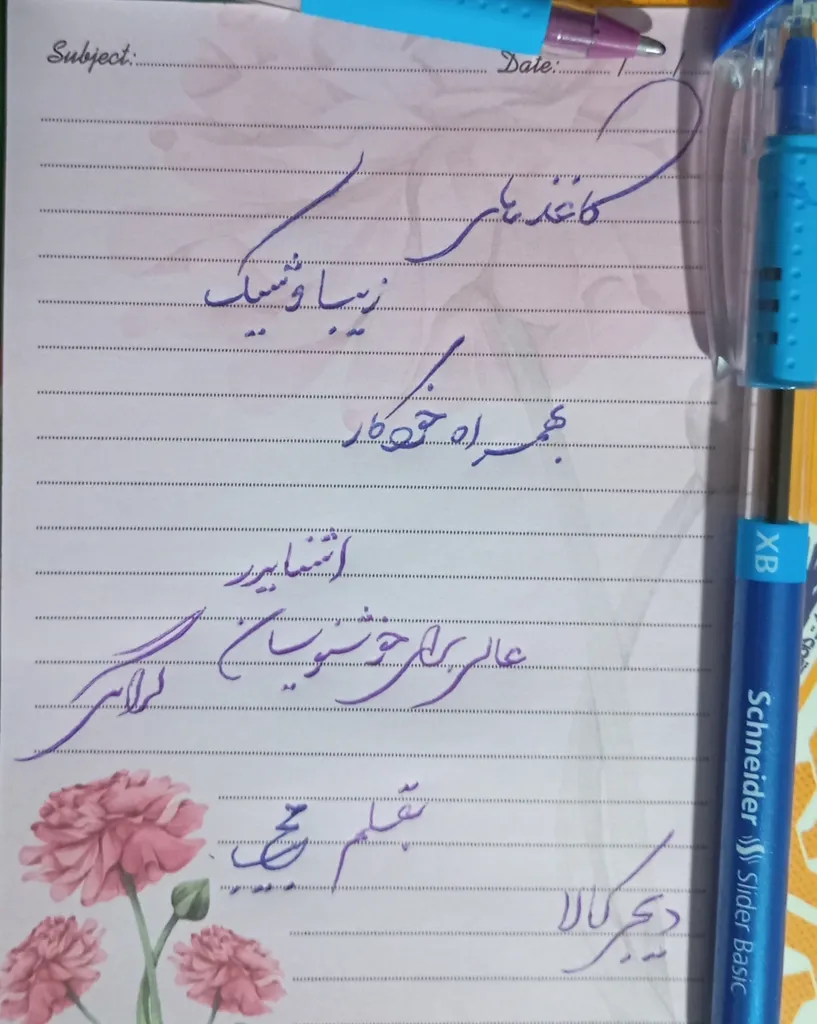 Subject: Date: / /
کاغذهای
زیبا و شیک
بهمراه خودکار
اشنایدر
عالی برای خوشنویسان
گرامی
بقلم
دیجی کالا
XB
Schneider Slider Basic